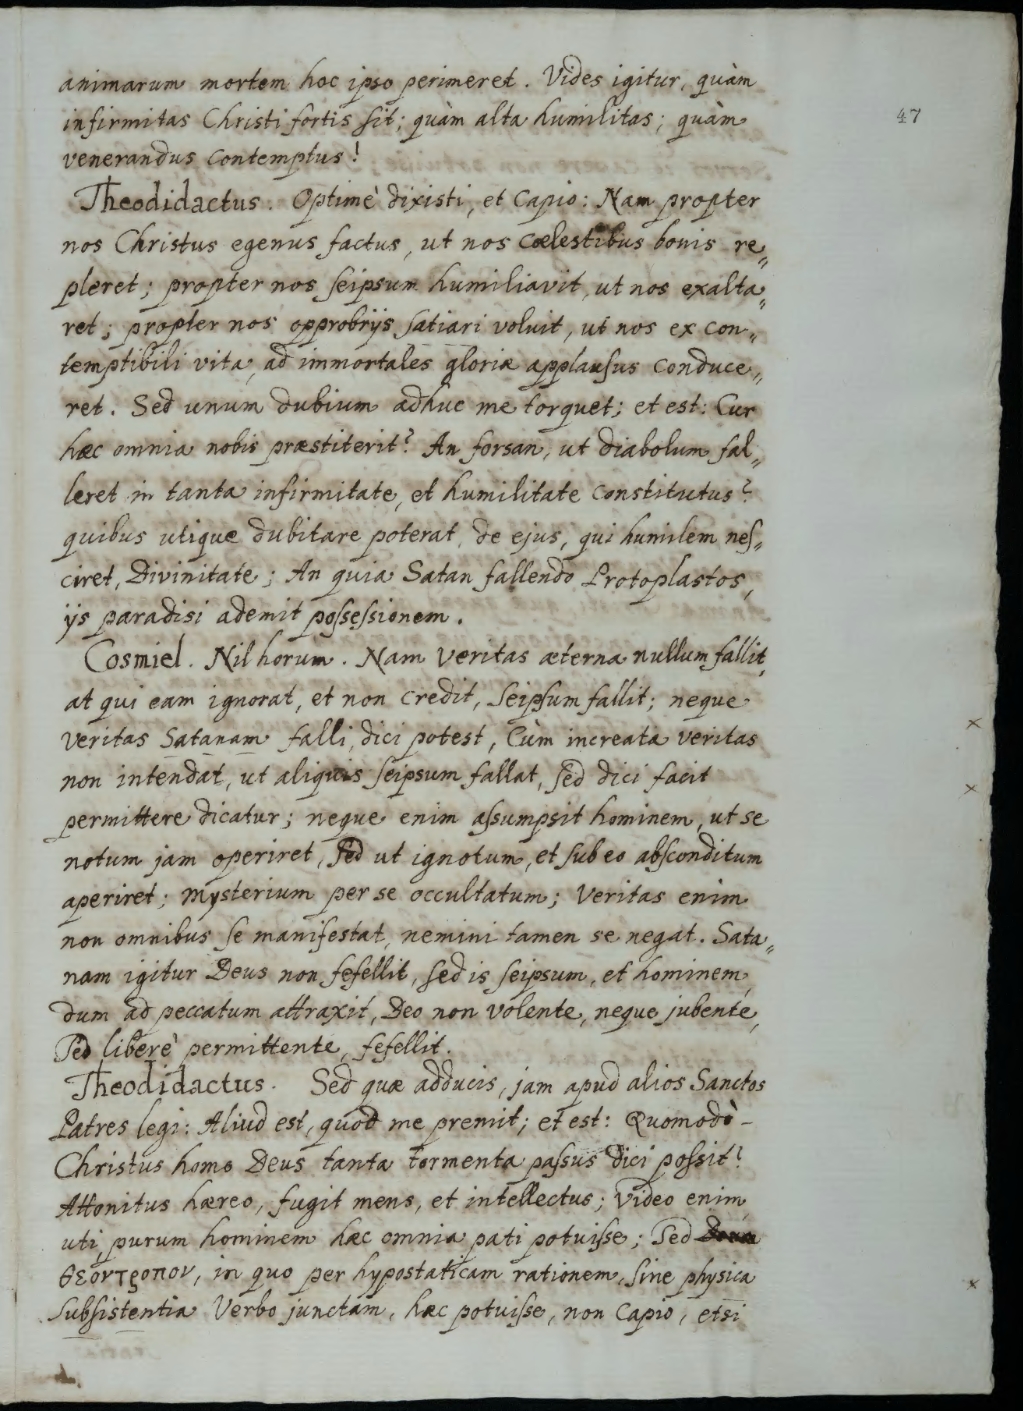 animarum mortem hoc ipso perimeret. Vides igitur, quàm
47
infirmitas Christi fortis sit; quàm alta humilitas; quàm
venerandus contemptus!
Theodidactus. Optimè dixisti, et Capio: Nam propter
nos Christus egenus factus, ut nos cœlestibus bonis re„
pleret; propter nos seipsum humiliavit, ut nos exalta„
ret; propter nos opprobrijs satiari voluit, ut nos ex con„
temptibili vita, ad immortales gloriæ applausus conduce„
ret. Sed unum dubium adhuc me torquet; et est: Cur
hæc omnia nobis præstiterit? An forsan, ut diabolum fal„
leret in tanta infirmitate, et humilitate constitutus?
quibus utique dubitare poterat, de ejus, qui humilem nes„
ciret, Divinitate; An quia Satan fallendo Protoplastos,
ijs paradisi ademit possessionem.
Cosmiel. Nil horum. Nam veritas æterna nullum fallit,
at qui eam ignorat, et non credit, seipsum fallit; neque
veritas Satanam falli, dici potest, Cùm increata veritas
non intendat, ut aliquis seipsum fallat, sed dici facit
permittere dicatur; neque enim assumpsit hominem, ut se
notum jam operiret, sed ut ignotum, et sub eo absconditum
aperiret; mysterium per se occultatum; Veritas enim
non omnibus se manifestat, nemini tamen se negat. Sata„
nam igitur Deus non fefellit, sed is seipsum, et hominem,
dum ad peccatum attraxit, Deo non volente, neque jubente,
sed liberè permittente, fefellit.
Theodidactus. Sed quæ adducis, jam apud alios Sanctos
Patres legi: Aliud est, quod me premit; et est: Quomodò -
Christus homo Deus tanta tormenta passus dici possit!
Attonitus hæreo, fugit mens, et intellectus; video enim,
uti, purum hominem hæc omnia pati potuisse; Sed
θεόντροπον, in quo per hypostaticam rationem, sine physica
subsistentia Verbo junctam, hæc potuisse, non Capio, etsi